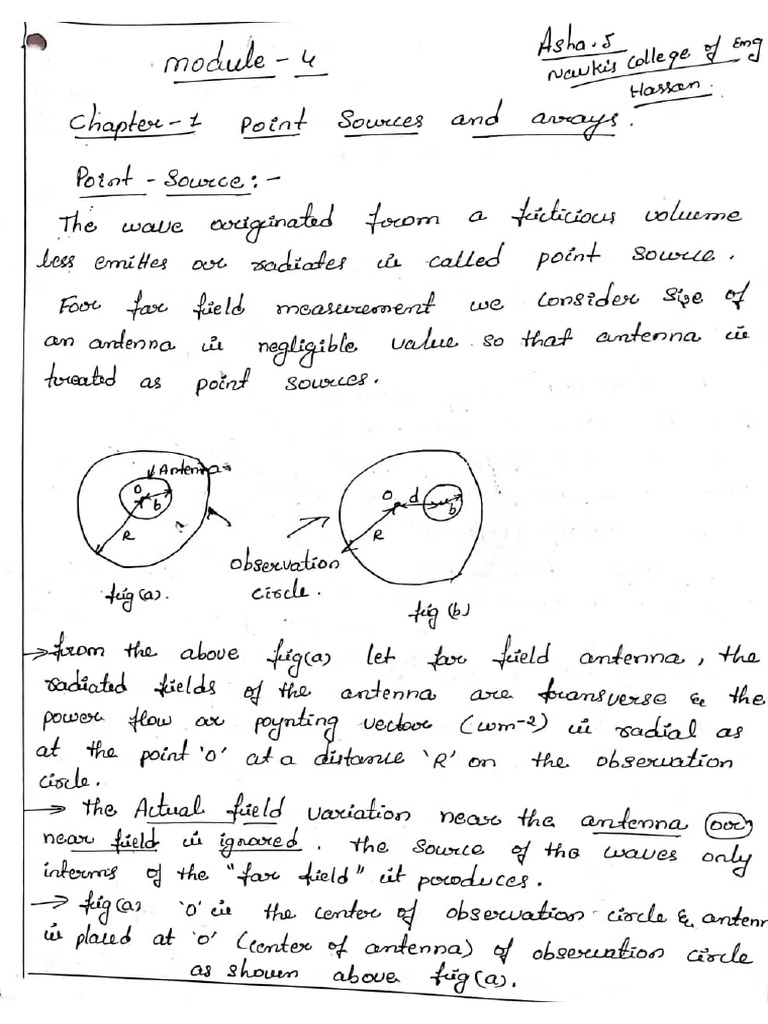 Module - 4
Asha.S
Navkis College of Eng
Hassan.
Chapter-1 Point Sources and arrays.
Point - Source:-
The wave originated from a ficticious volume
less emitter or radiates is called point source.
For far field measurement we consider size of
an antenna is negligible value so that antenna is
treated as point sources.
Antenna
O
b
R
fig(a).
observation
circle.
O
d
b
R
fig (b)
→ from the above fig(a) let far field antenna, the
radiated fields of the antenna are transverse & the
power flow or poynting vector (wm-2) is radial as
at the point 'O' at a distance 'R' on the observation
circle.
→ the Actual field variation near the antenna (or)
near field is ignored. the source of the waves only
interms of the "far field" it produces.
→ fig(a) 'O' is the center of observation circle & antenn
is placed at 'O' (center of antenna) of observation circle
as shown above fig(a).